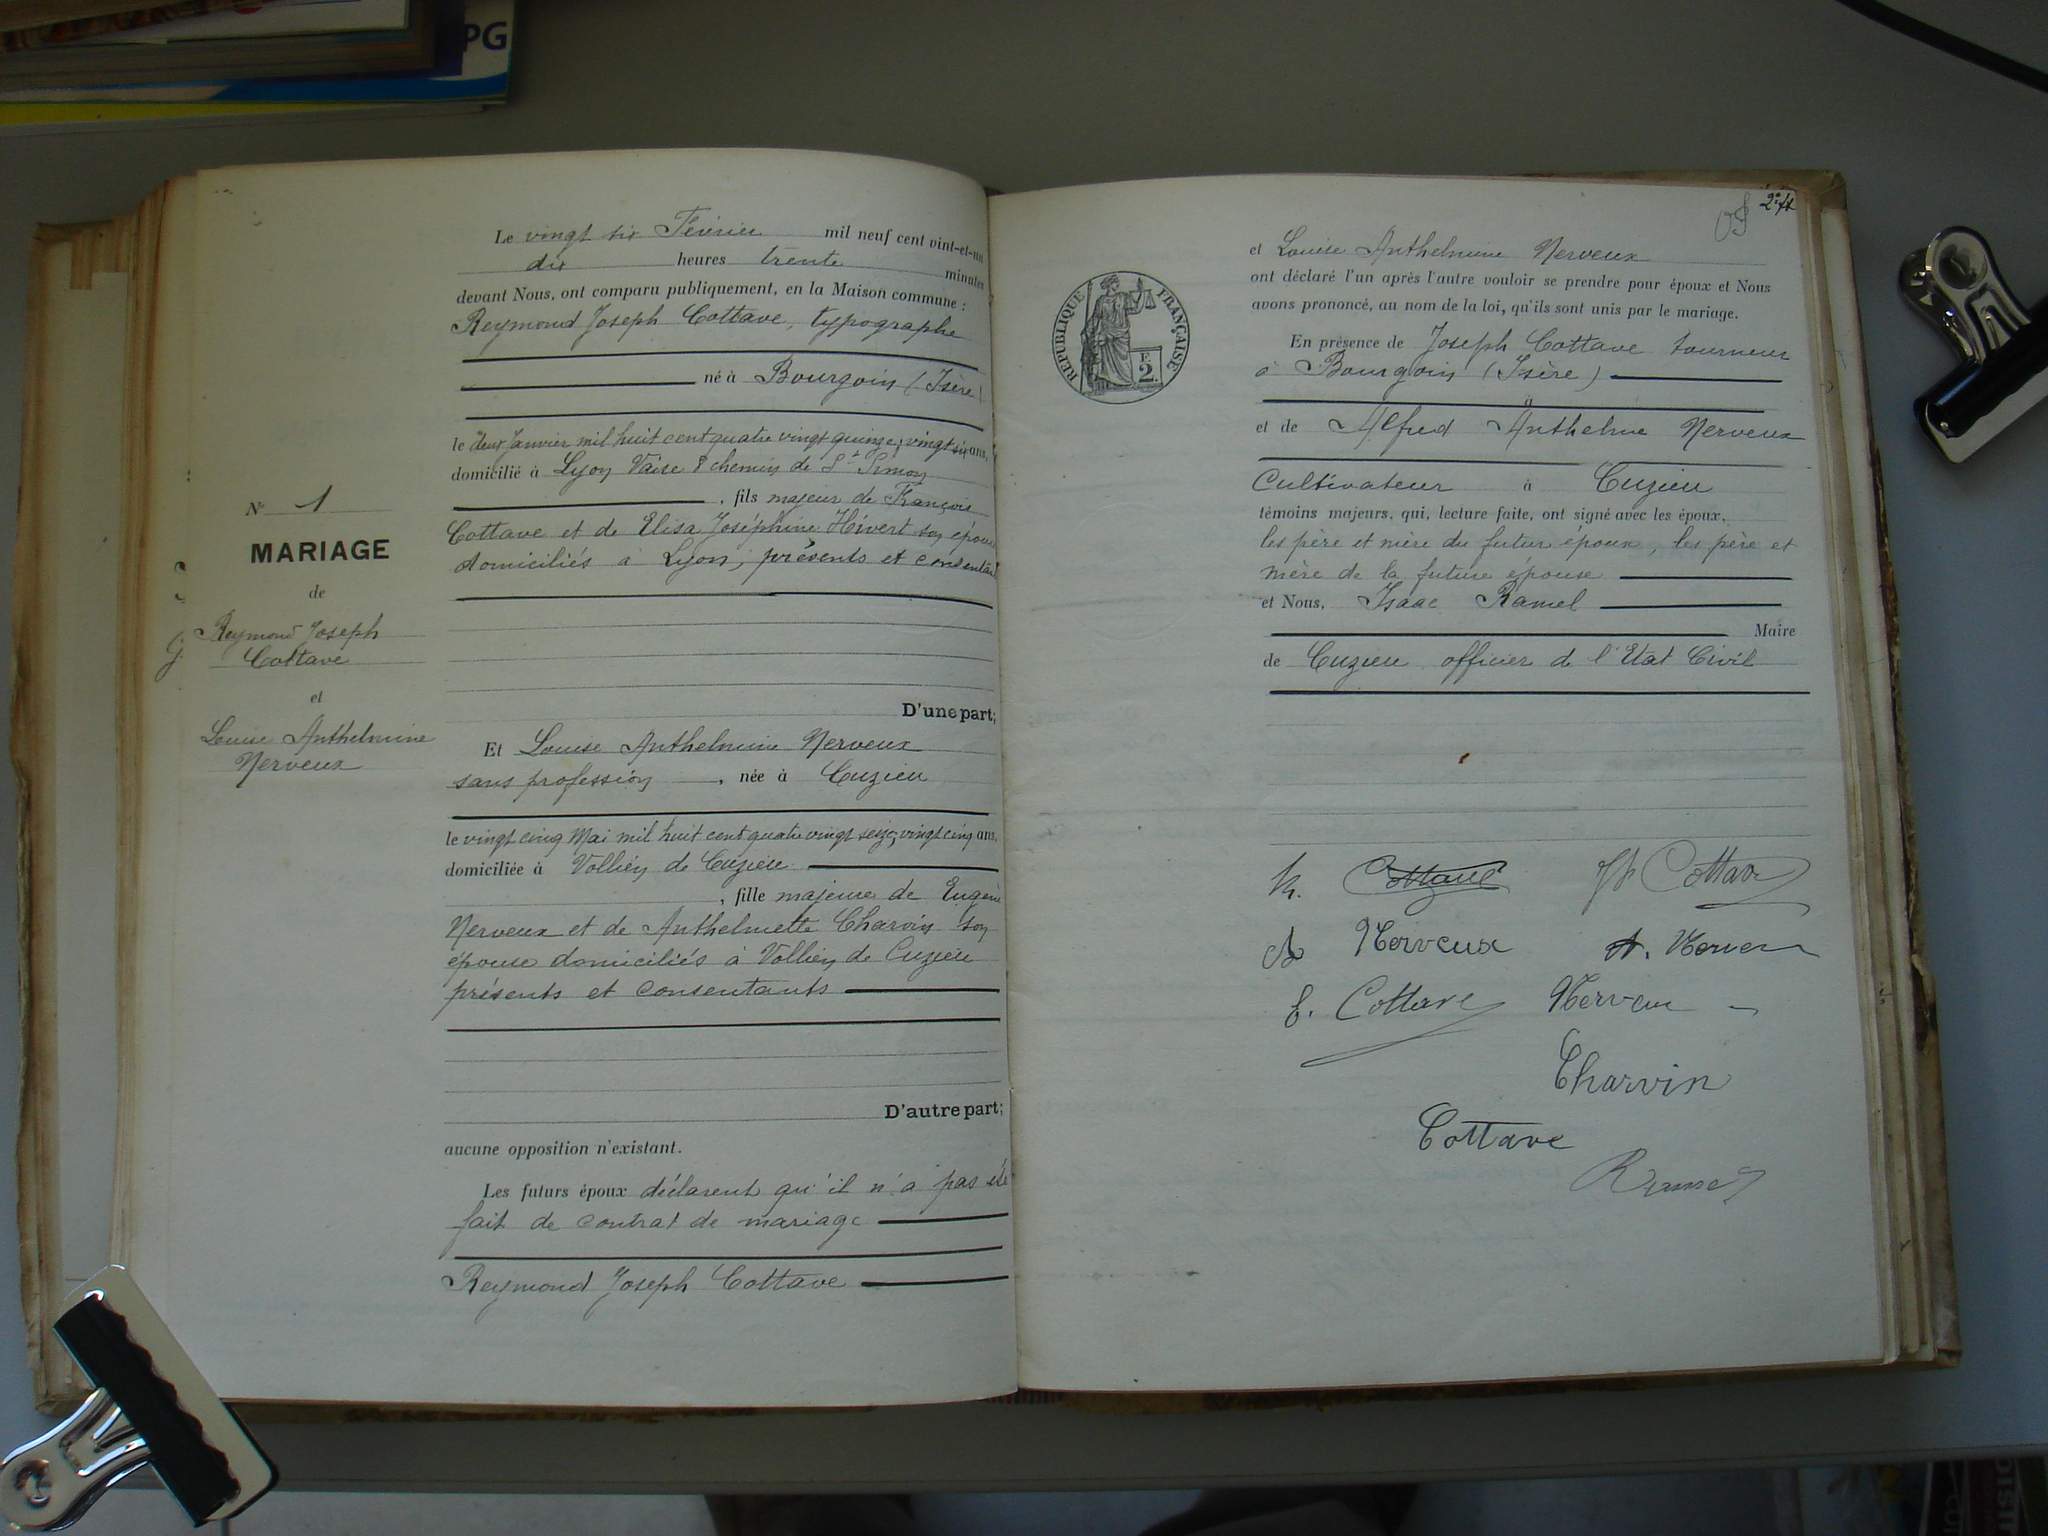 PG
Le vingt six Février mil neuf cent vint-et-un
dix heures trente minutes
devant Nous, ont comparu publiquement, en la Maison commune :
Reymond Joseph Cottave, typographe
né à Bourgoin (Isère)
le deux Janvier mil huit cent quatre vingt quinze, vingt six ans,
domicilié à Lyon Vaise 8 chemin de St Simon
, fils majeur de François
Cottave et de Elisa Joséphine Hivert son épouse
domiciliés à Lyon, présents et consentants
D'une part;
Et Louise Anthelmine Nerveux
sans profession , née à Cuzieu
le vingt cinq Mai mil huit cent quatre vingt seize, vingt cinq ans,
domiciliée à Vollien de Cuzieu
, fille majeure de Eugène
Nerveux et de Anthelmette Charvin son
épouse domiciliés à Vollien de Cuzieu
présents et consentants
D'autre part;
aucune opposition n'existant.
Les futurs époux déclarent qu'il n'a pas été
fait de contrat de mariage
Reymond Joseph Cottave
N° 1
MARIAGE
de
Reymond Joseph
Cottave
et
Louise Anthelmine
Nerveux
274
REPUBLIQUE FRANÇAISE
F.
2.
et Louise Anthelmine Nerveux
ont déclaré l'un après l'autre vouloir se prendre pour époux et Nous
avons prononcé, au nom de la loi, qu'ils sont unis par le mariage.
En présence de Joseph Cottave tourneur
à Bourgoin (Isère)
à
et de Alfred Anthelme Nerveux
Cultivateur à Cuzieu
témoins majeurs, qui, lecture faite, ont signé avec les époux,
les père et mère du futur époux, les père et
mère de la future épouse
et Nous, Isaac Ramel
Maire
de Cuzieu officier de l'Etat Civil
R. Cottave Jh Cottave
Nerveux A. Nerveux
E. Cottave Nerveux
Charvin
Cottave
Ramel